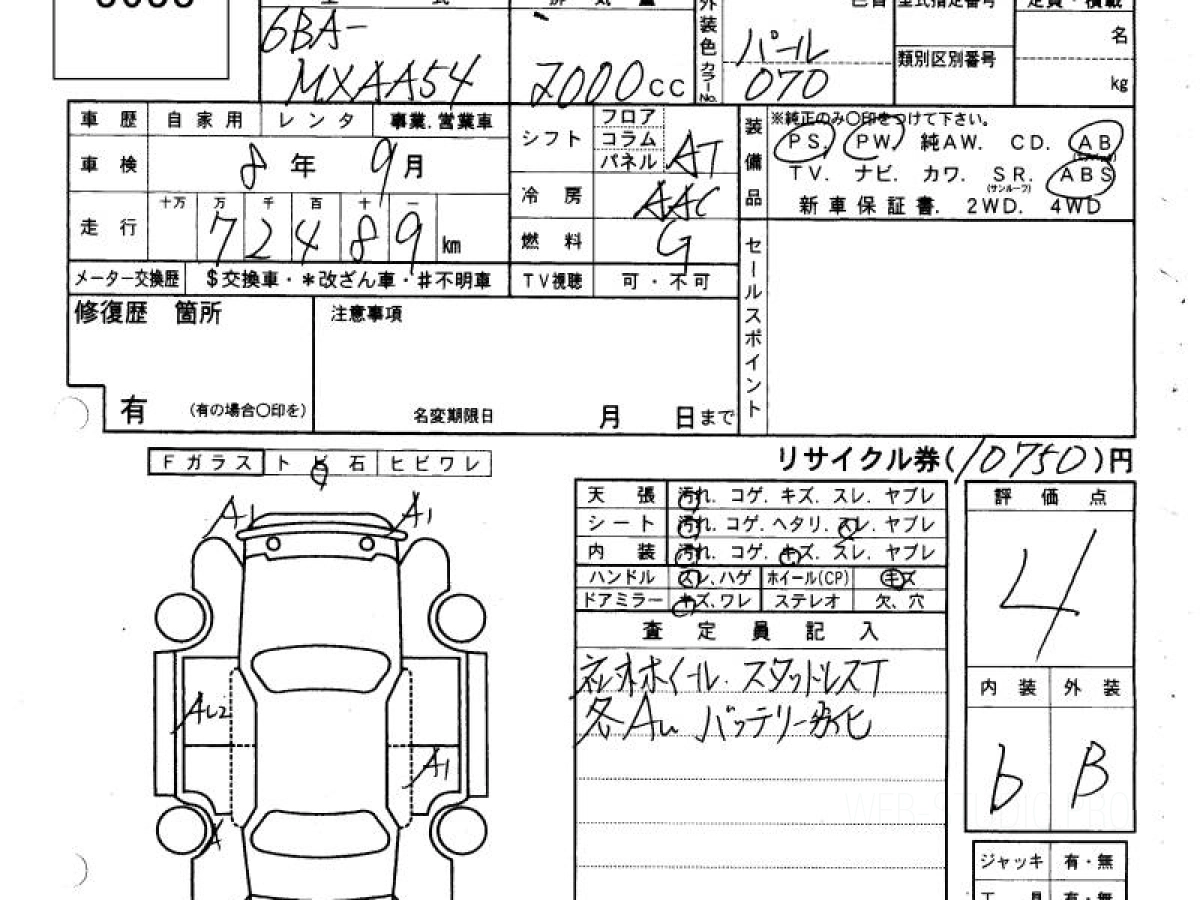 6BA-
MXAA54
2000 cc
外装色 カラーNo.
パール
070
型式指定番号
類別区別番号
定員・積載
名
kg
車歴 自家用 レンタ 事業.営業車
車検 8年 9月
走行 十万 万 千 百 十 一
72489 km
メーター交換歴 $交換車・*改ざん車・#不明車
シフト フロア コラム パネル AT
冷房 AAC
燃料 G
TV視聴 可・不可
装備品 ※純正のみ〇印をつけて下さい。
PS. PW. 純AW. CD. AB
TV. ナビ. カワ. SR. ABS
(サンルーフ)
新車保証書. 2WD. 4WD
セールスポイント
修復歴 箇所
有 (有の場合〇印を)
注意事項
名変期限日 月 日まで
リサイクル券(10750)円
Fガラス トビ石 ヒビワレ
A1 A1
AU2
A1
天張 汚れ. コゲ. キズ. スレ. ヤブレ
シート 汚れ. コゲ. ヘタリ. スレ. ヤブレ
内装 汚れ. コゲ. キズ. スレ. ヤブレ
ハンドル スレ、ハゲ ホイール(CP) キズ
ドアミラー キズ、ワレ ステレオ 欠、穴
査定員記入
社外ホイール. スタッドレスT
各AU バッテリー劣化
評価点
4
内装 外装
b B
ジャッキ 有・無
工具 有・無
WEB STUDIO PRO